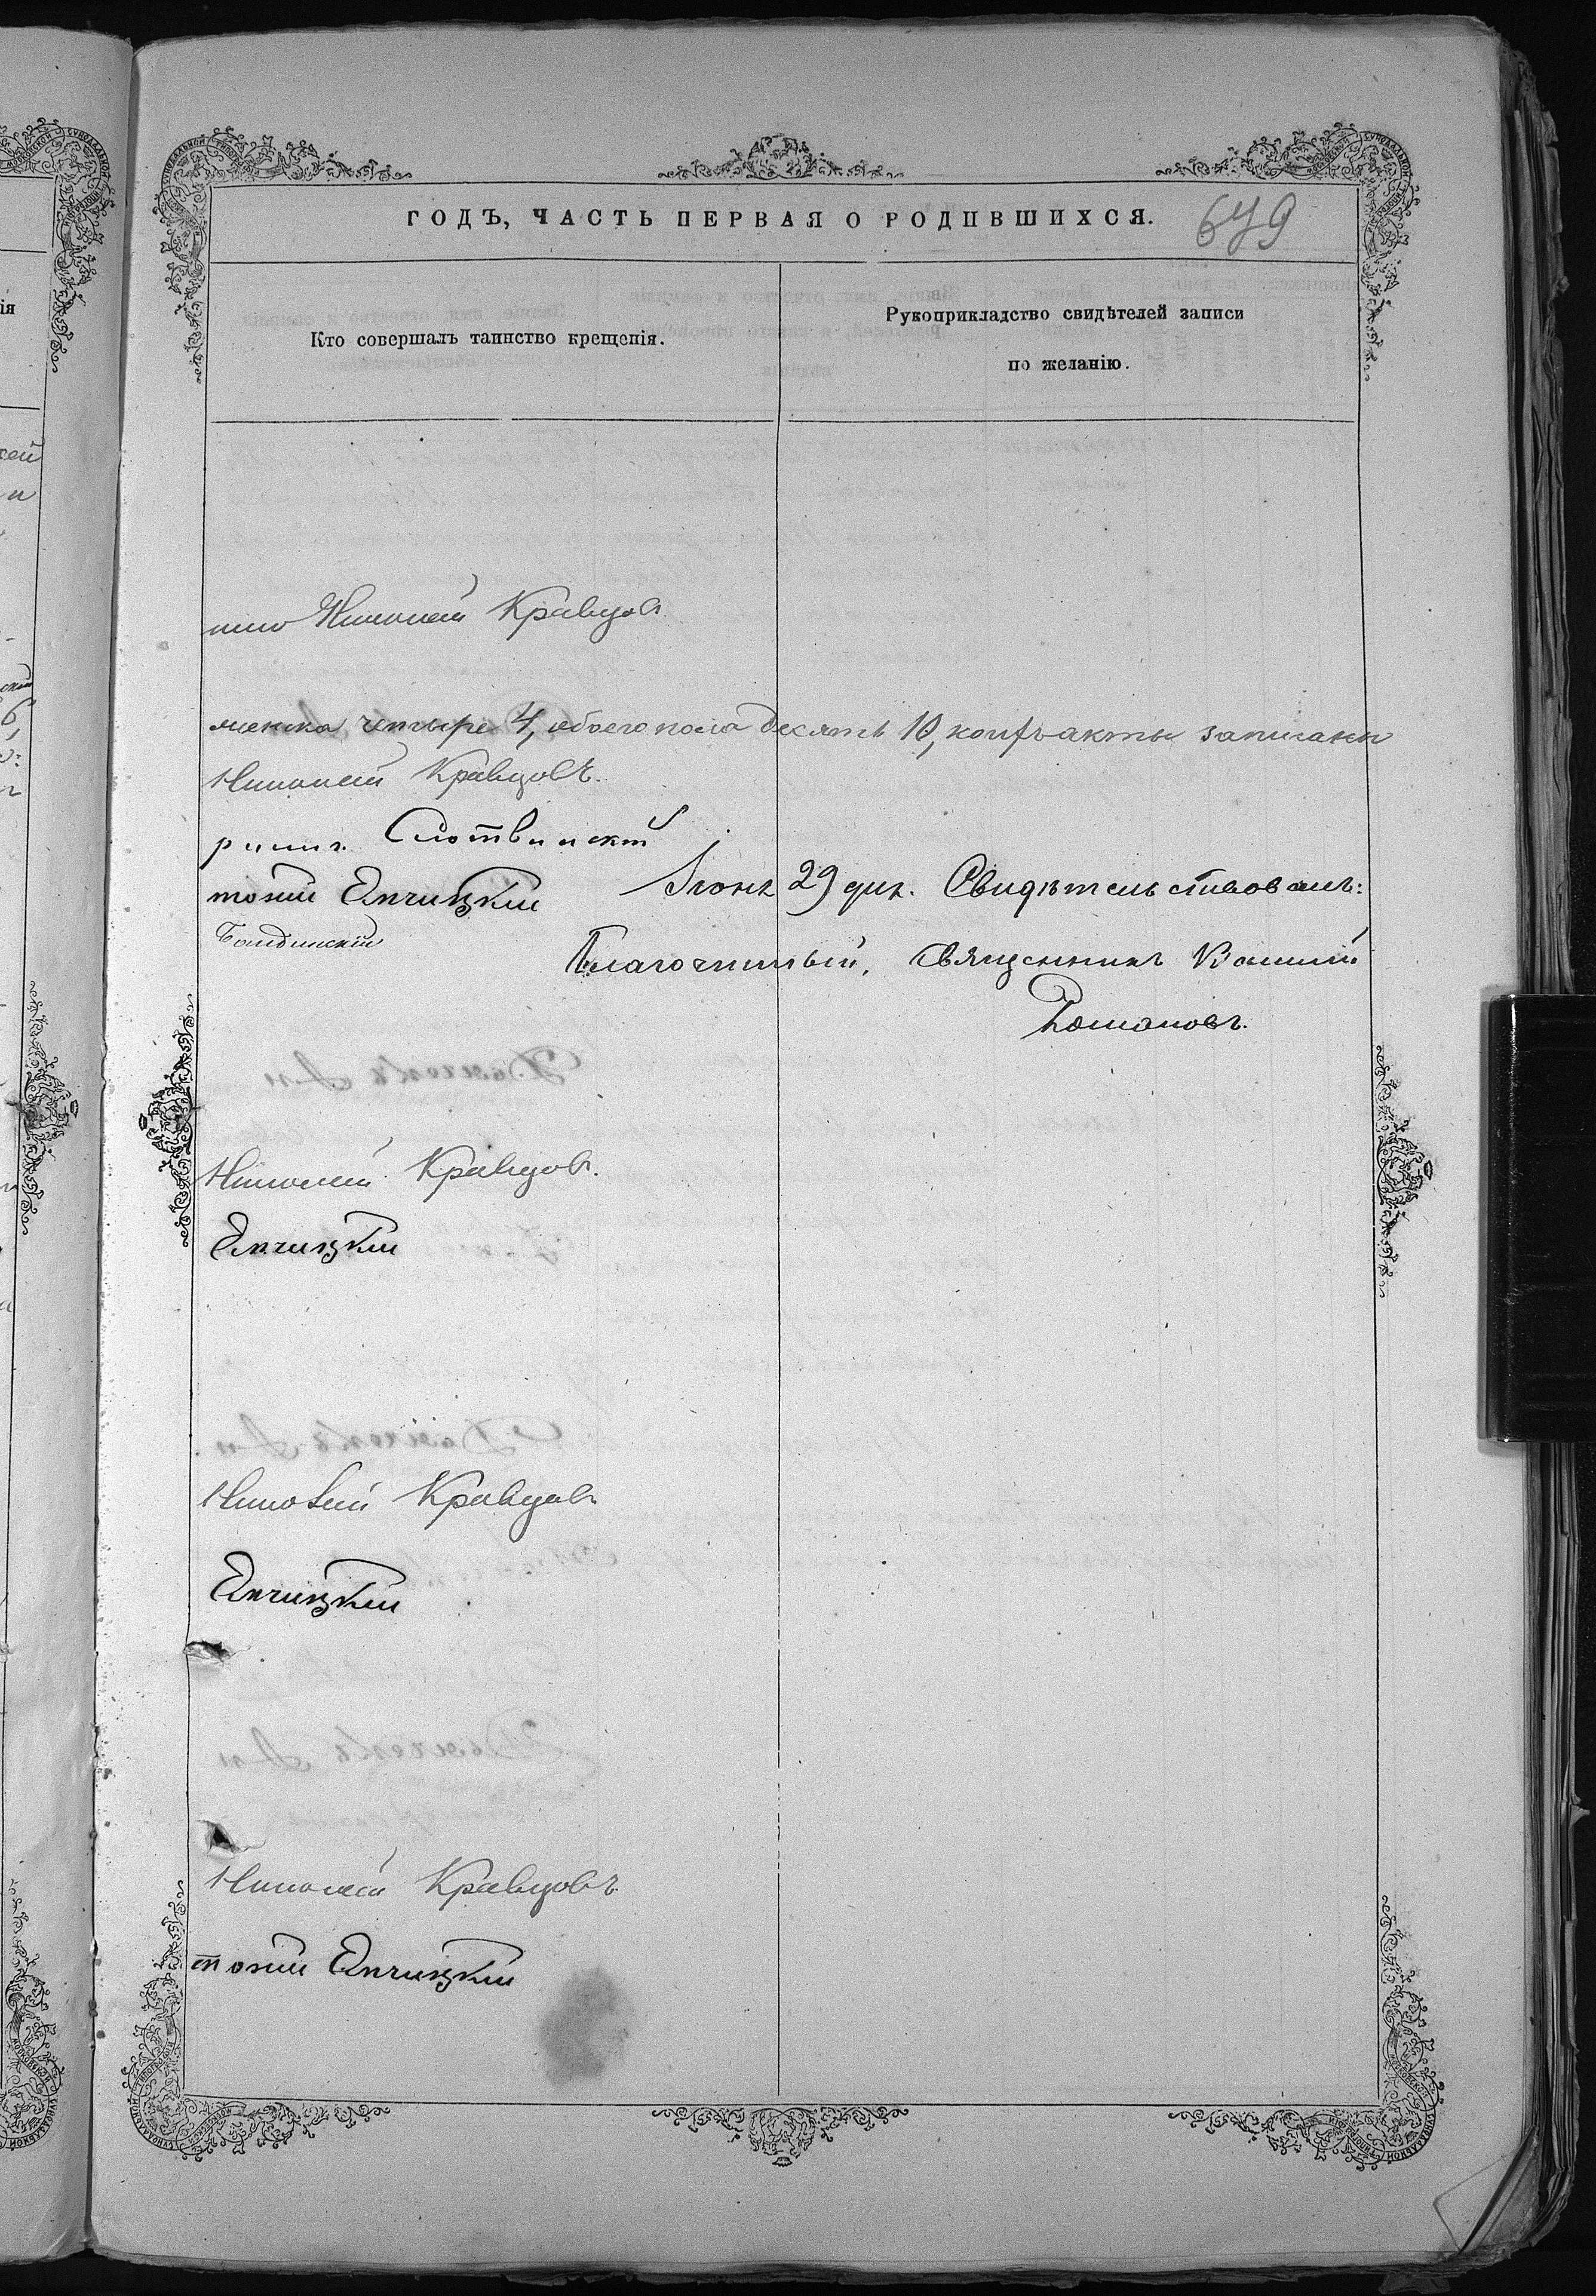 ГОДЪ, ЧАСТЬ ПЕРВАЯ О РОДИВШИХСЯ. 679
Кто совершалъ таинство крещенія.
Рукоприкладство свидѣтелей записи
по желанію.
Николай Кравцовъ
женска четыре 4, обоего пола десять 10, коихъ акты записаны
Николай Кравцовъ.
Слотвинскій
тоній Япчицкій
Іюня 29 дня. Свидѣтельствовалъ:
Благочинный, Священникъ
Романовъ.
Николай Кравцовъ.
Япчицкій
Николай Кравцовъ
Япчицкій
Николай Кравцовъ
тоній Япчицкій